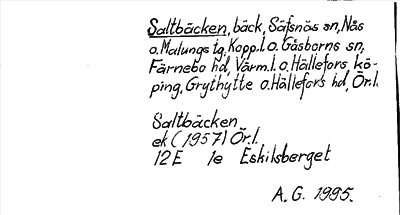 Saltbäcken, bäck, Säfsnäs sn, Nås
o. Malungs tg, Kopp.l. o. Gåsborns sn,
Färnebo hd, Värm.l. o. Hällefors kö-
ping, Grythytte o. Hällefors hd, Ör.l.
Saltbäcken
ek (1957) Ör.l.
12 E 1e Eskilsberget
A.G. 1995.